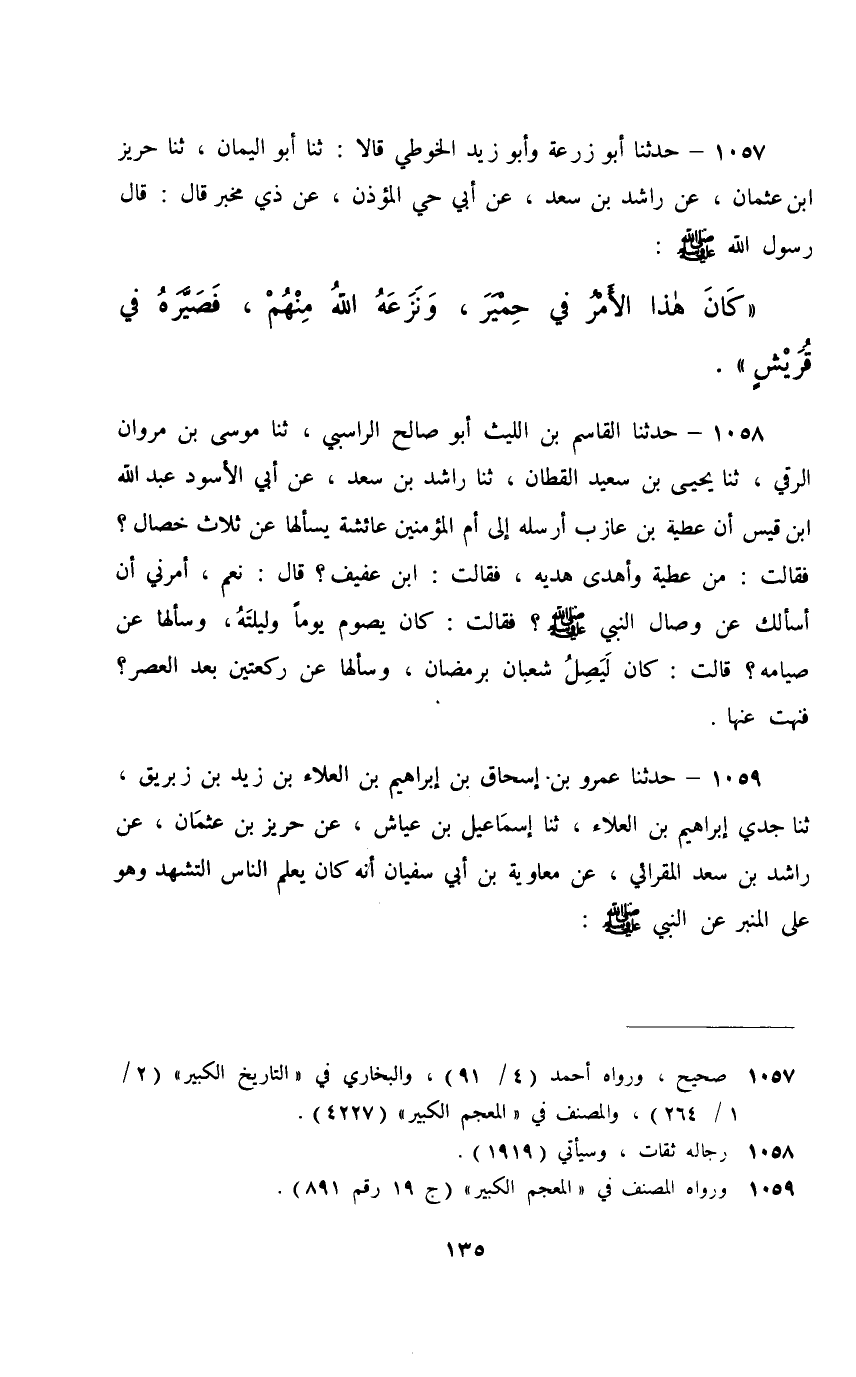 ١٠٥٧ – حدثنا أبو زرعة وأبو زيد الخوطي قالا : ثنا أبو اليمان ، ثنا حريز
ابن عثمان ، عن راشد بن سعد ، عن أبي حي المؤذن ، عن ذي مخبر قال : قال
رسول الله ﷺ :
«كَانَ هٰذا الأَمْرُ في حِمْيَرَ ، وَنَزَعَهُ اللهُ مِنْهُمْ ، فَصَيَّرَهُ في
قُرَيْشٍ» .
١٠٥٨ – حدثنا القاسم بن الليث أبو صالح الراسبي ، ثنا موسى بن مروان
الرقي ، ثنا يحيى بن سعيد القطان ، ثنا راشد بن سعد ، عن أبي الأسود عبد الله
ابن قيس أن عطية بن عازب أرسله إلى أم المؤمنين عائشة يسألها عن ثلاث خصال ؟
فقالت : من عطية وأهدى هديه ، فقالت : ابن عفيف ؟ قال : نعم ، أمرني أن
أسألك عن وصال النبي ﷺ ؟ فقالت : كان يصوم يوماً وليلتَهُ ، وسألها عن
صيامه ؟ قالت : كان لَيَصِلُ شعبان برمضان ، وسألها عن ركعتين بعد العصر ؟
فنهت عنها .
١٠٥٩ – حدثنا عمرو بن إسحاق بن إبراهيم بن العلاء بن زيد بن زبريق ،
ثنا جدي إبراهيم بن العلاء ، ثنا إسمَاعيل بن عياش ، عن حريز بن عثمَان ، عن
راشد بن سعد المقرائي ، عن معاوية بن أبي سفيان أنه كان يعلم الناس التشهد وهو
على المنبر عن النبي ﷺ :
١٠٥٧ صحيح ، ورواه أحمد (٤ / ٩١) ، والبخاري في «التاريخ الكبير» (٢ /
١ / ٢٦٤) ، والمصنف في «المعجم الكبير» (٤٢٢٧) .
١٠٥٨ رجاله ثقات ، وسيأتي (١٩١٩) .
١٠٥٩ ورواه المصنف في «المعجم الكبير» (ج ١٩ رقم ٨٩١) .
١٣٥